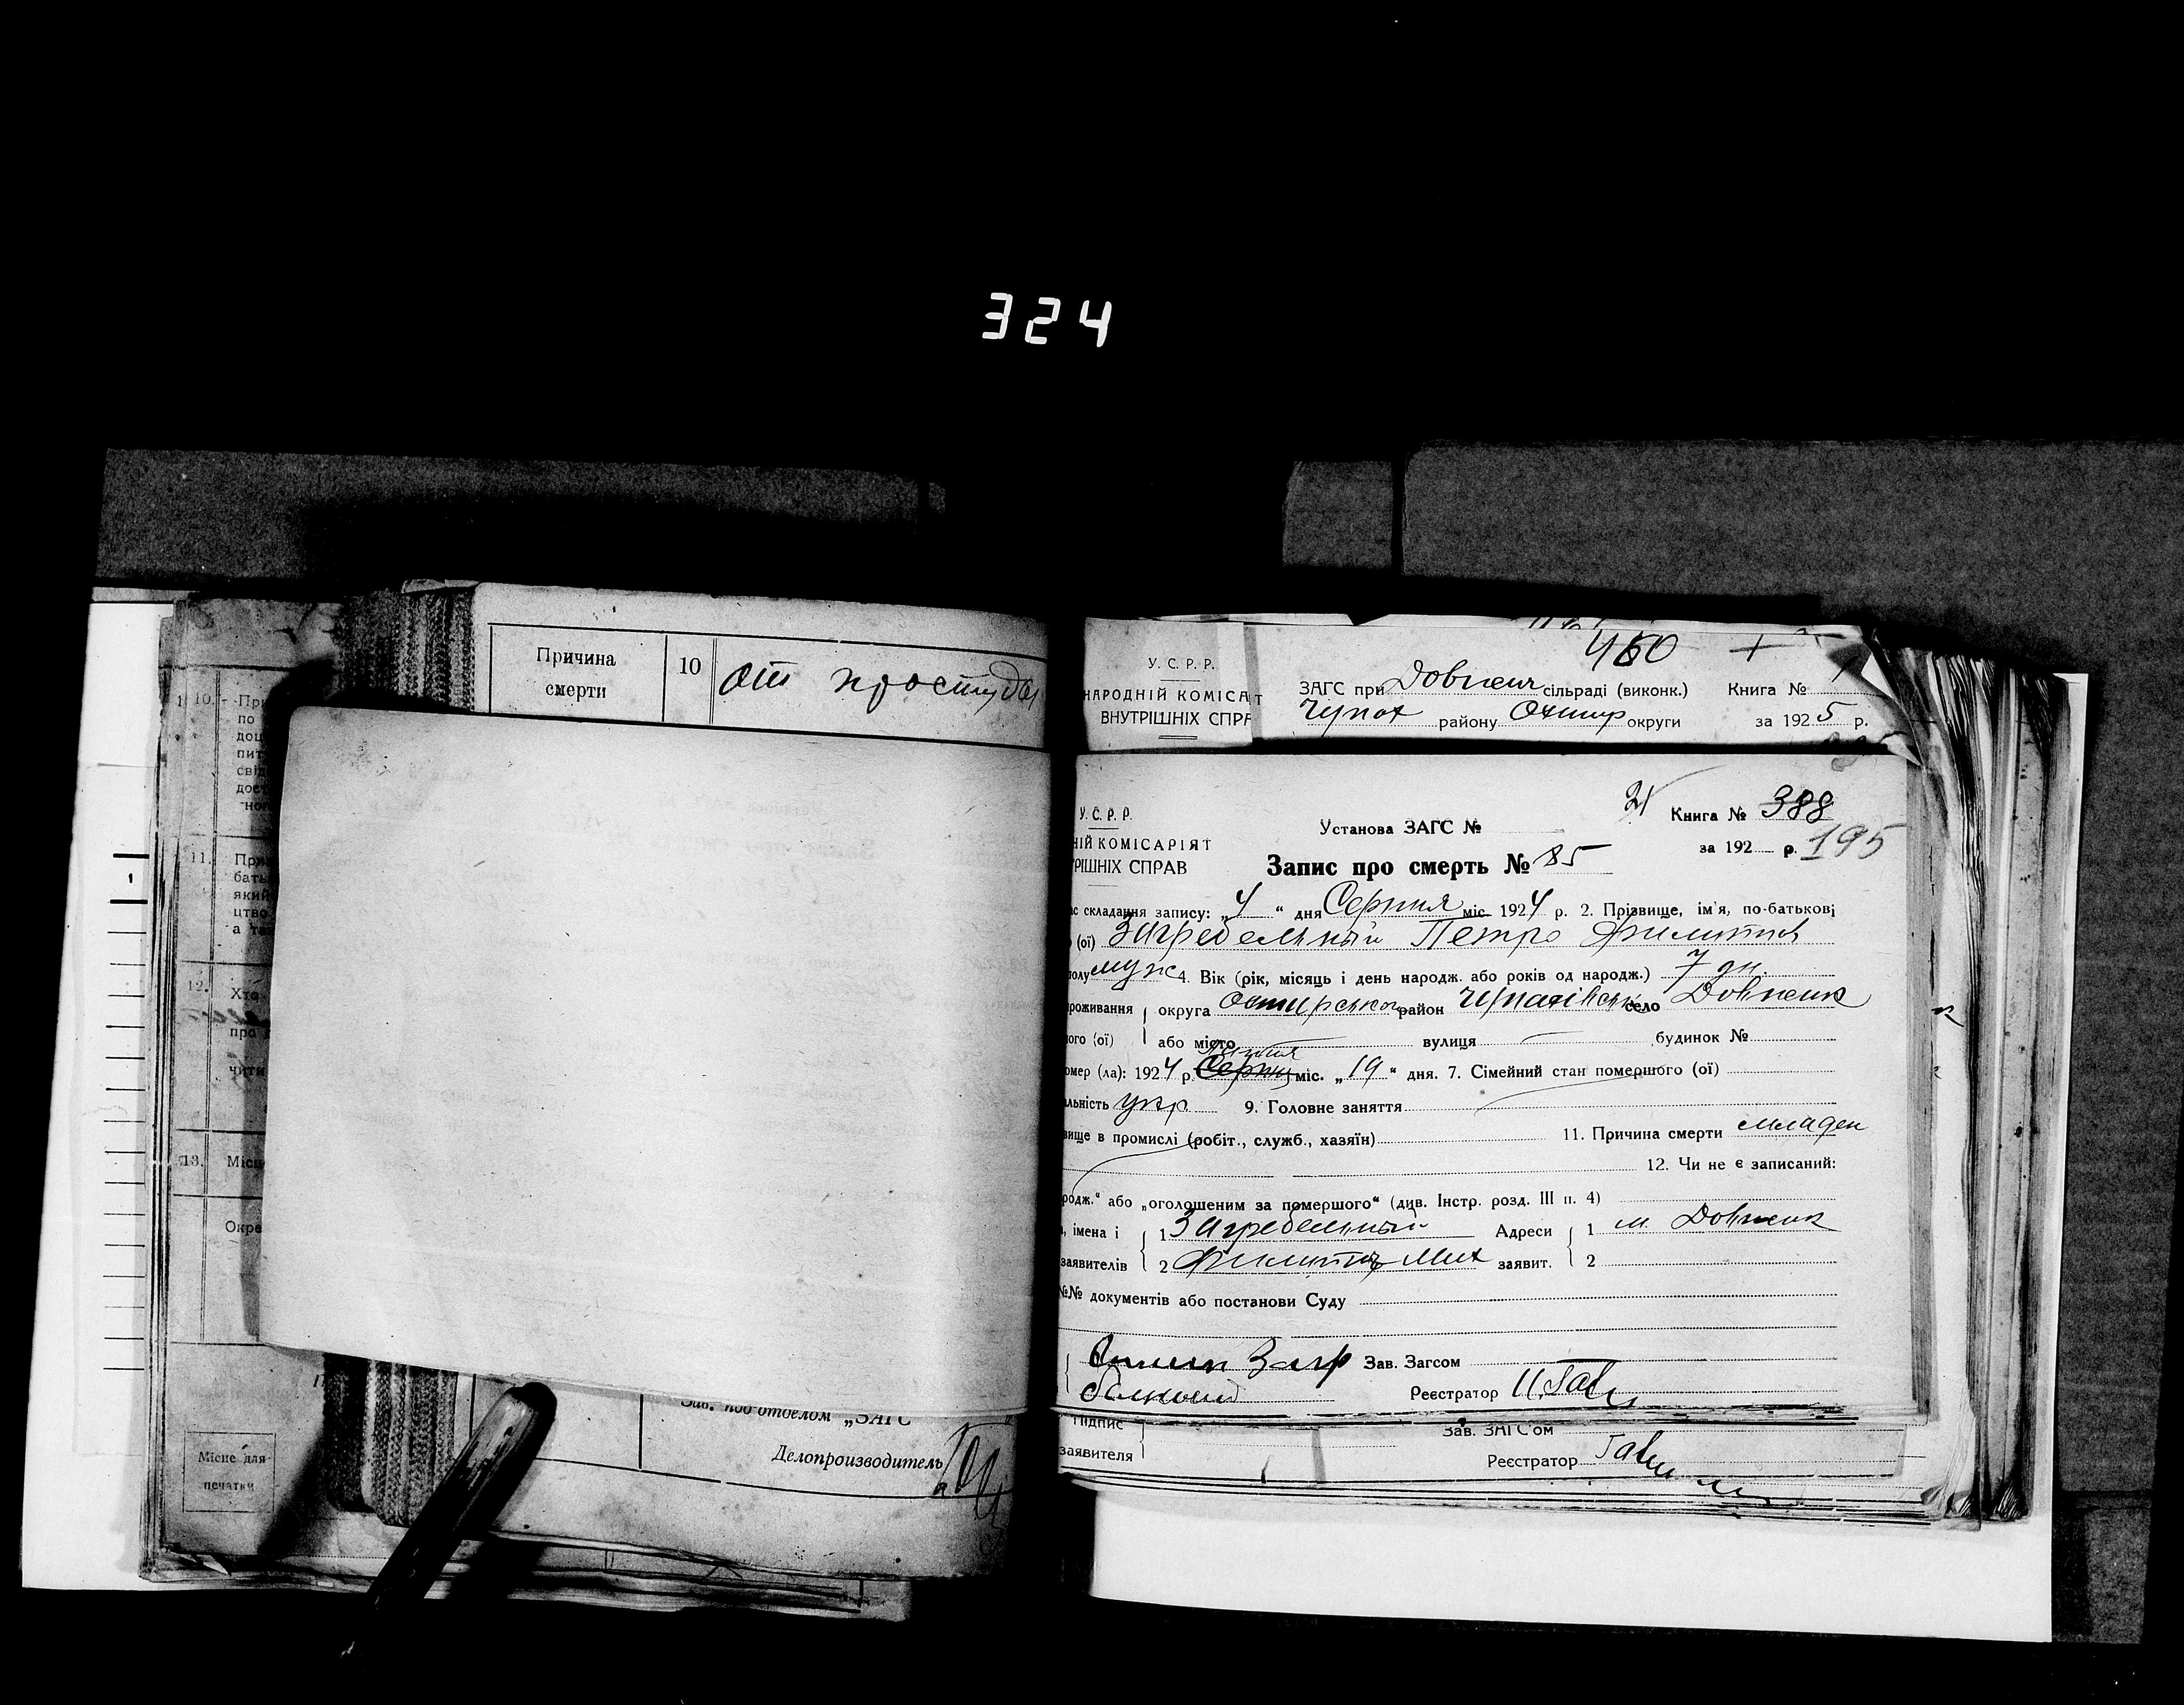 324
Причина
смерти
10
от простуды
У. С. Р. Р.
НАРОДНІЙ КОМІСАТ
ВНУТРІШНІХ СПРА
460
ЗАГС при сільраді (виконк.) Книга № 1
Чупах району Охтир округи за 1925 р.
10. При
11. При
бать
який
цтво
а та
12. Хто
про
чити
13. Місц
Окре
Місце для
печатки
У. С. Р. Р.
НІЙ КОМІСАРІЯТ
РІШНІХ СПРАВ
21
Установа ЗАГС №
Книга № 388
за 192 р. 195
Запис про смерть № 85
ас складання запису: „4“ дня Серпня міс 1924 р. 2. Прізвище, ім'я, по-батькові
(ої) Загребельний Петро Филипов
полу муж 4. Вік (рік, місяць і день народж. або років од народж.) 7 дн.
роживання округа Охтирська район Чупахівськ село
ого (ої) або місто вулиця будинок №
Липня
омер (ла): 1924 р. Серпня міс. „19“ дня. 7. Сімейний стан помершого (ої)
альність укр 9. Головне заняття
вище в промислі (робіт., служб., хазяїн) 11. Причина смерти младен
12. Чи не є записаний:
родж.“ або „оголошеним за помершого“ (див. Інстр. розд. III п. 4)
, імена і 1 Загребельный Адреси 1
заявителів 2 Филипп Мих заявит. 2
№№ документів або постанови Суду
Загр Зав. Загсом
Реєстратор
Зав. под-отделом „ЗАГС“
Делопроизводитель
Підпис
заявителя
Зав. ЗАГС'ом
Реєстратор